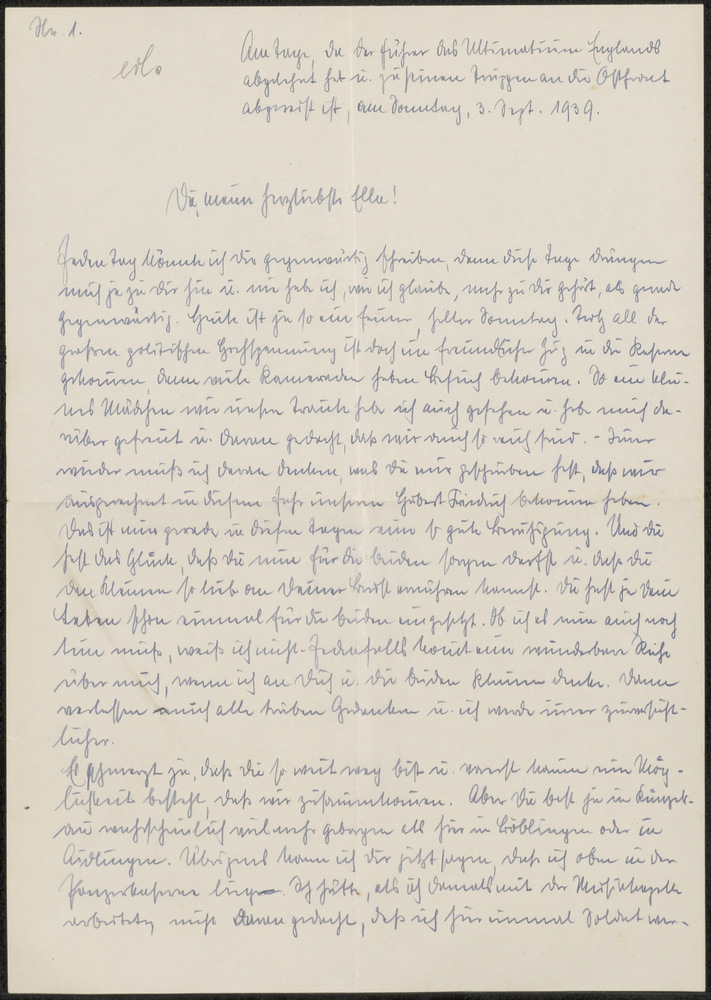 Nr. 1.
erl.
Am Tage, da der Führer das Ultimatum Englands
abgelehnt hat u. zu seinen Truppen an die Ostfront
abgereist ist, am Sonntag, 3. Sept. 1939.
Du, meine herzliebste Ella!
Jeden Tag könnte ich Dir gegenwärtig schreiben, denn diese Tage drängen
mich ja zu Dir hin u. nie habe ich, wie ich glaube, mehr zu Dir gehört, als gerade
gegenwärtig. Heute ist ja so ein feiner, heller Sonntag. Trotz all der
großen politischen Hochspannung ist doch ein freundlicher Zug in die Kaserne
gekommen, denn viele Kameraden haben Besuch bekommen. So ein klei-
nes Mädchen wie unsere Traute habe ich auch gesehen u. habe mich da-
rüber gefreut u. daran gedacht, daß wir auch so reich sind. - Immer
wieder muß ich daran denken, was Du mir geschrieben hast, daß wir
ausgerechnet in diesem Jahr unseren Hubert Friedrich bekommen haben.
Das ist mir gerade in diesen Tagen eine so gute Beruhigung. Und Du
hast das Glück, daß Du nun für die beiden sorgen darfst u. daß Du
den Kleinen so lieb an Deiner Brust ernähren kannst. Du hast ja Dein
Leben schon einmal für die beiden eingesetzt. Ob ich es nun auch noch
tun muß, weiß ich nicht. Jedenfalls kommt eine wunderbare Ruhe
über mich, wenn ich an Dich u. die beiden Kleinen denke. Dann
verlassen mich alle trüben Gedanken u. ich werde immer zuversicht-
licher.
Es schmerzt ja, daß Du so weit weg bist u. vorerst kaum eine Mög-
lichkeit besteht, daß wir zusammenkommen. Aber Du bist ja in Künzels-
au wahrscheinlich viel mehr geborgen als hier in Böblingen oder in
Aidlingen. Übrigens kann ich Dir jetzt sagen, daß ich oben in der
Panzerkaserne liege. Ich hätte, als ich damals mit der Musikkapelle
arbeitete, nicht daran gedacht, daß ich hier einmal Soldat wer-